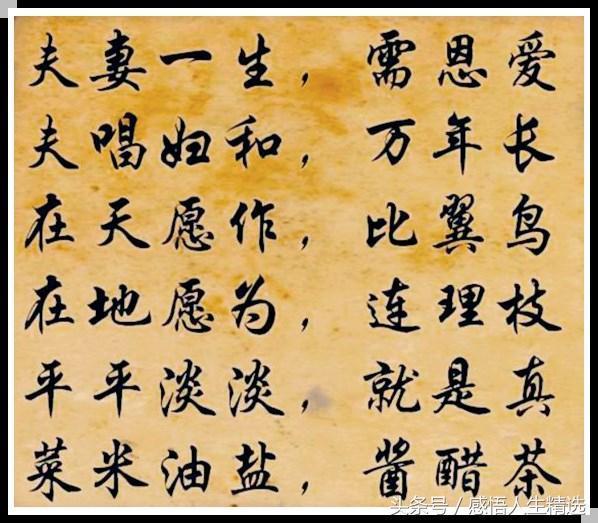 夫妻一生，需恩爱
夫唱妇和，万年长
在天愿作，比翼鸟
在地愿为，连理枝
平平淡淡，就是真
菜米油盐，酱醋茶
头条号／感悟人生精选